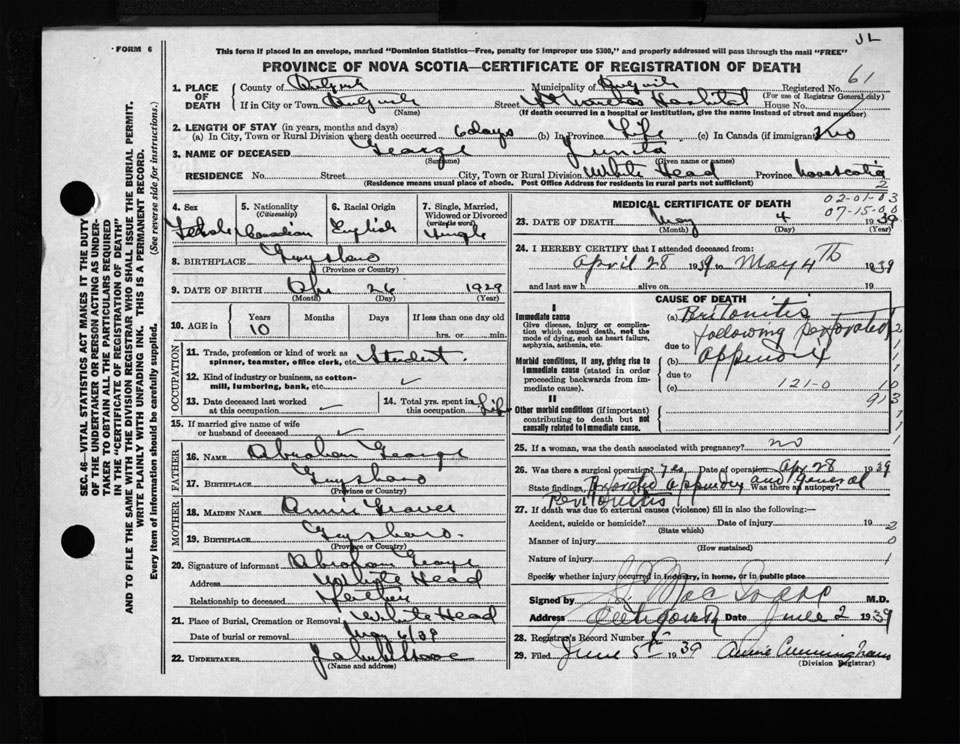 JL
FORM 6
This form if placed in an envelope, marked "Dominion Statistics—Free, penalty for improper use $300," and properly addressed will pass through the mail "FREE"
PROVINCE OF NOVA SCOTIA—CERTIFICATE OF REGISTRATION OF DEATH
61
1. PLACE OF DEATH County of Municipality of Registered No.
(For use of Registrar General only)
If in City or Town Street Hospital House No.
(Name) (If death occurred in a hospital or institution, give the name instead of street and number)
2. LENGTH OF STAY (in years, months and days)
(a) In City, Town or Rural Division where death occurred 6 days (b) In Province Life (c) In Canada (if immigrant) no
3. NAME OF DECEASED George Junita
(Surname) (Given name or names)
RESIDENCE No. Street City, Town or Rural Division White Head Province Nova Scotia
(Residence means usual place of abode. Post Office Address for residents in rural parts not sufficient)
2
4. Sex Female
5. Nationality (Citizenship) Canadian
6. Racial Origin English
7. Single, Married, Widowed or Divorced (write the word) Single
8. BIRTHPLACE Guysboro
(Province or Country)
9. DATE OF BIRTH Apr 26 1929
(Month) (Day) (Year)
10. AGE in Years Months Days If less than one day old
10 hrs. or min.
OCCUPATION
11. Trade, profession or kind of work as spinner, teamster, office clerk, etc. Student
12. Kind of industry or business, as cotton-mill, lumbering, bank, etc. ✓
13. Date deceased last worked at this occupation ✓
14. Total yrs. spent in this occupation Life
15. If married give name of wife or husband of deceased ✓
FATHER
16. NAME Abraham George
17. BIRTHPLACE Guysboro
(Province or Country)
MOTHER
18. MAIDEN NAME Annie
19. BIRTHPLACE Guysboro
(Province or Country)
20. Signature of informant Abraham George
Address White Head
Relationship to deceased Father
21. Place of Burial, Cremation or Removal White Head
Date of burial or removal May 6/39
22. UNDERTAKER
(Name and address)
MEDICAL CERTIFICATE OF DEATH
02-01-03
07-15-00
23. DATE OF DEATH May 4 1939
(Month) (Day) (Year)
24. I HEREBY CERTIFY that I attended deceased from:
April 28 1939 to May 4th 1939
and last saw h alive on 19
CAUSE OF DEATH
I
Immediate cause
Give disease, injury or complication which caused death, not the mode of dying, such as heart failure, asphyxia, asthenia, etc.
Morbid conditions, if any, giving rise to immediate cause (stated in order proceeding backwards from immediate cause).
II
Other morbid conditions (if important) contributing to death but not causally related to immediate cause.
(a) Peritonitis
due to following perforated
(b) appendix
due to
(c) 121-0
25. If a woman, was the death associated with pregnancy? no
26. Was there a surgical operation? Yes Date of operation Apr 28 1939
State findings appendix and general Was there an autopsy?
Peritonitis
27. If death was due to external causes (violence) fill in also the following:—
Accident, suicide or homicide? Date of injury 19
(State which)
Manner of injury
(How sustained)
Nature of injury
Specify whether injury occurred in industry, in home, or in public place
Signed by M.D.
Address Antigonish Date June 2 1939
28. Registrar's Record Number
29. Filed June 5th 1939 Annie Cunningham
(Division Registrar)
SEC. 46—VITAL STATISTICS ACT MAKES IT THE DUTY OF THE UNDERTAKER OR PERSON ACTING AS UNDERTAKER TO OBTAIN ALL THE PARTICULARS REQUIRED IN THE "CERTIFICATE OF REGISTRATION OF DEATH" AND TO FILE THE SAME WITH THE DIVISION REGISTRAR WHO SHALL ISSUE THE BURIAL PERMIT.
WRITE PLAINLY WITH UNFADING INK. THIS IS A PERMANENT RECORD.
Every item of information should be carefully supplied. (See reverse side for instructions.)